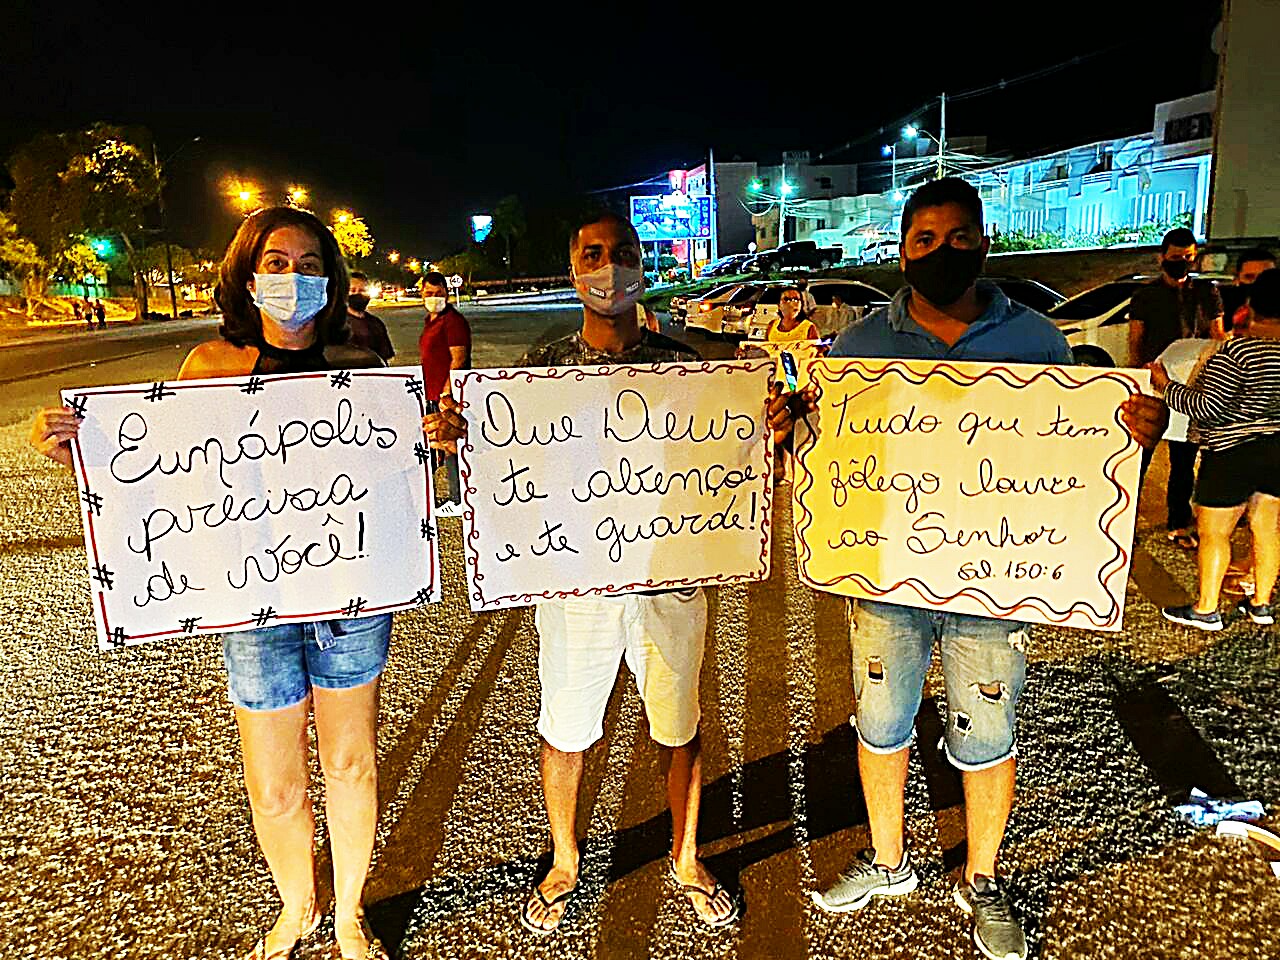 Eunápolis
precisa
de você!
Que Deus
te abençoe
e te guarde!
Tudo que tem
fôlego louve
ao Senhor
Sl. 150:6